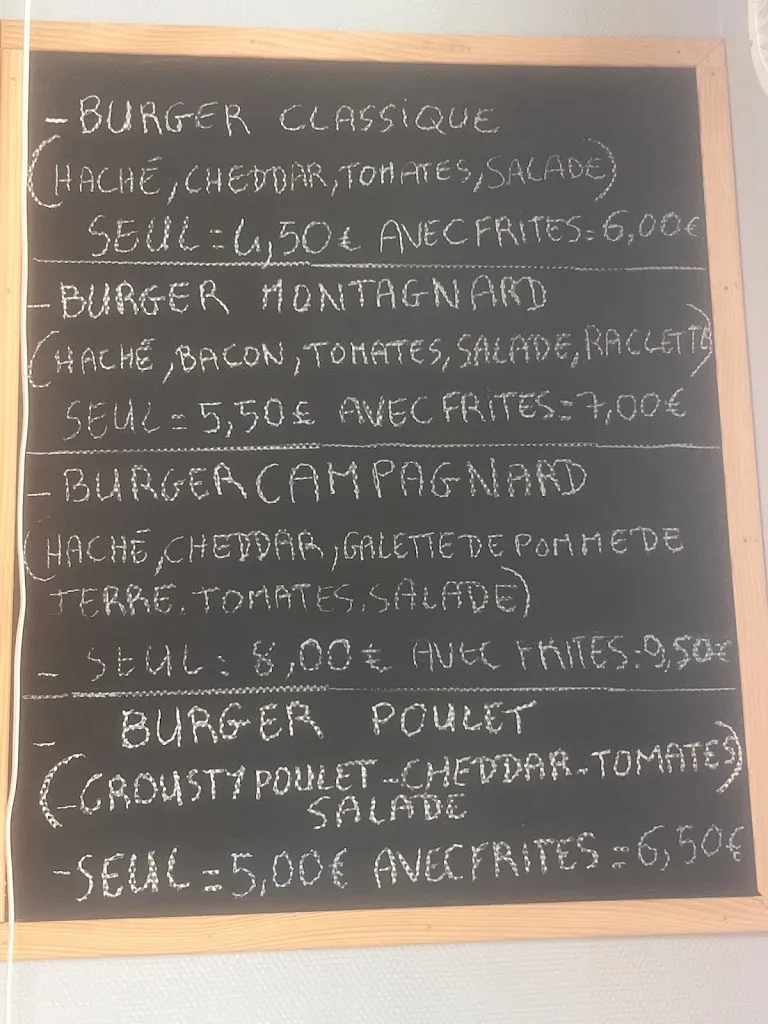 - BURGER CLASSIQUE
(HACHÉ, CHEDDAR, TOMATES, SALADE)
SEUL = 4,50€ AVEC FRITES = 6,00€
- BURGER MONTAGNARD
(HACHÉ, BACON, TOMATES, SALADE, RACLETTE)
SEUL = 5,50€ AVEC FRITES = 7,00€
- BURGER CAMPAGNARD
(HACHÉ, CHEDDAR, GALETTE DE POMME DE
TERRE. TOMATES. SALADE)
- SEUL = 8,00€ AVEC FRITES = 9,50€
- BURGER POULET
(-CROUSTY POULET - CHEDDAR - TOMATES)
SALADE
- SEUL = 5,00€ AVEC FRITES = 6,50€